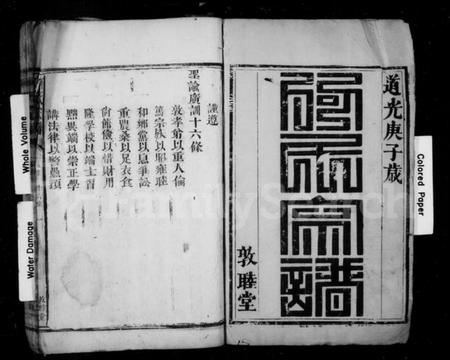 道光庚子歲
氏宗譜
敦睦堂
謹遵
聖諭廣訓十六條
敦孝弟以重人倫
篤宗族以昭雍睦
和鄉黨以息爭訟
重農桑以足衣食
尚節儉以惜財用
隆學校以端士習
黜異端以崇正學
講法律以儆愚頑
Whole Volume
Water Damage
Colored Paper
FamilySearch